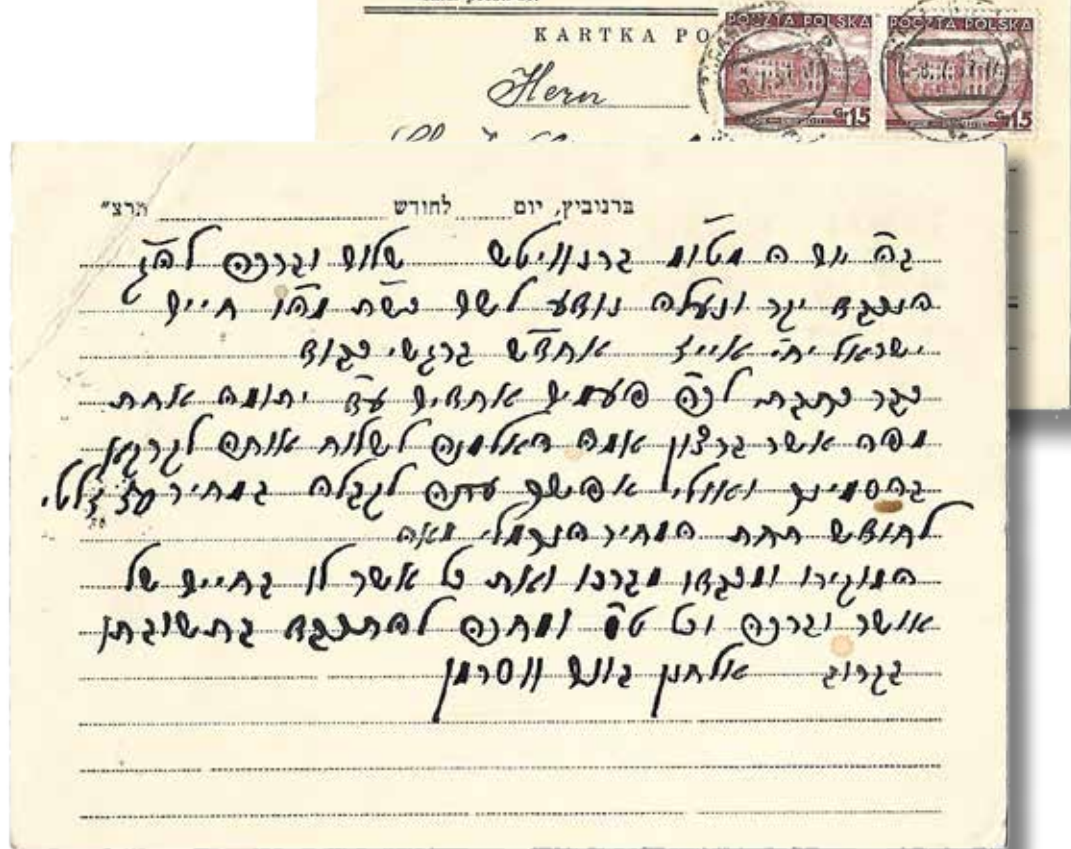 KARTKA PO
POCZTA POLSKA POCZTA POLSKA
Gr 15 Gr 15
Herrn
ברנוביץ, יום לחודש תרצ"
ב"ה יום ה מטות ברנוויטש שלום וברכה
הנכבד יקר ונעלה נודע לשם כש"ת חיים
ישראל אייז אחדש ברגשי כבוד
כבר כתבתי פעמים אחדים ע"ד יתומה אחת
מפה אשר ברצון אמה האלמנה לשלוח אותה
בהסמינר ואולי אפשר עתה לקבלה במחיר
לחודש תחת המחיר הנרמלי מאה
המוקירו ומכבדו מברכו ואת כל אשר לו בחיים של
אושר וברכה וכל ט"ס ומחכה להתכבד בתשובתו
בקרוב אלחנן בונם ווסרמן